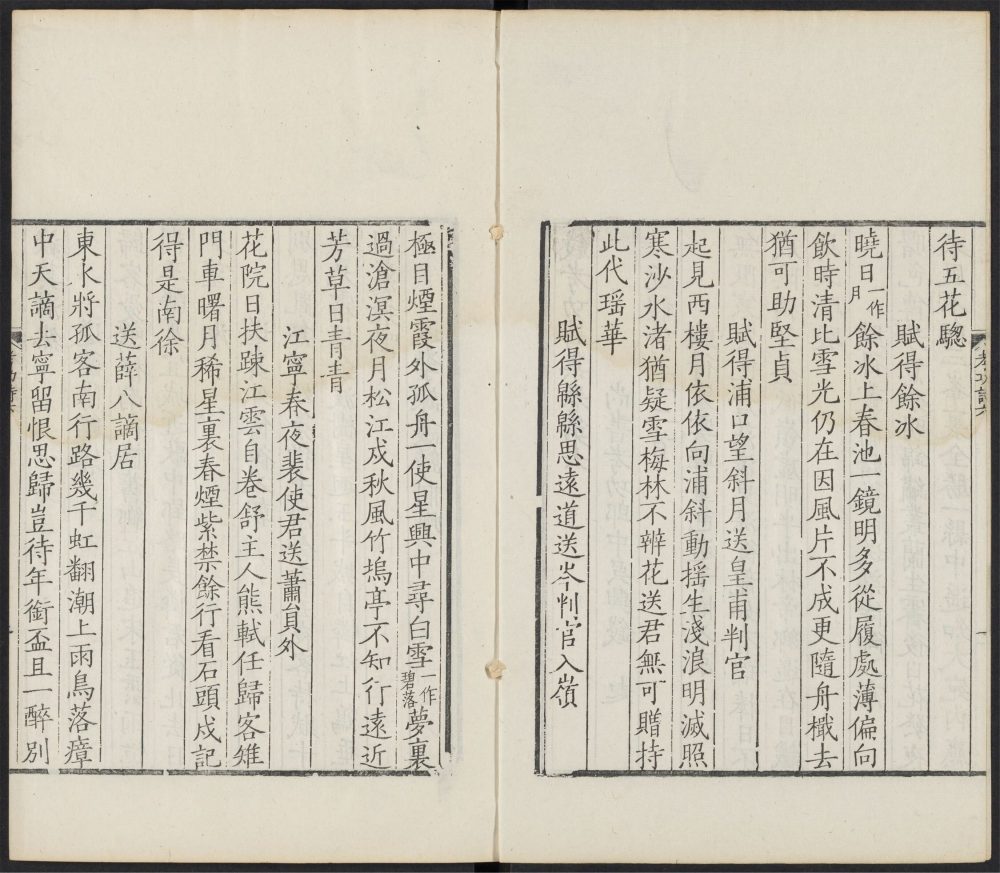 待五花驄
賦得餘冰
曉日一作月餘冰上春池一鏡明多從履處薄偏向
飲時清比雪光仍在因風片不成更隨舟檝去
猶可助堅貞
賦得浦口望斜月送皇甫判官
起見西樓月依依向浦斜動揺生淺浪明滅照
寒沙水渚猶疑雪梅林不辨花送君無可贈持
此代瑶華
賦得緜緜思遠道送岑判官入嶺
極目煙霞外孤舟一使星興中尋白雪一作碧落夢裏
過滄溟夜月松江戍秋風竹塢亭不知行遠近
芳草日青青
江寧春夜裴使君送蕭員外
花院日扶踈江雲自卷舒主人熊軾任歸客雉
門車曙月稀星裏春煙紫禁餘行看石頭戍記
得是南徐
送薛八謫居
東水將孤客南行路幾千虹翻潮上雨鳥落瘴
中天謫去寧留恨思歸豈待年銜盃且一醉別